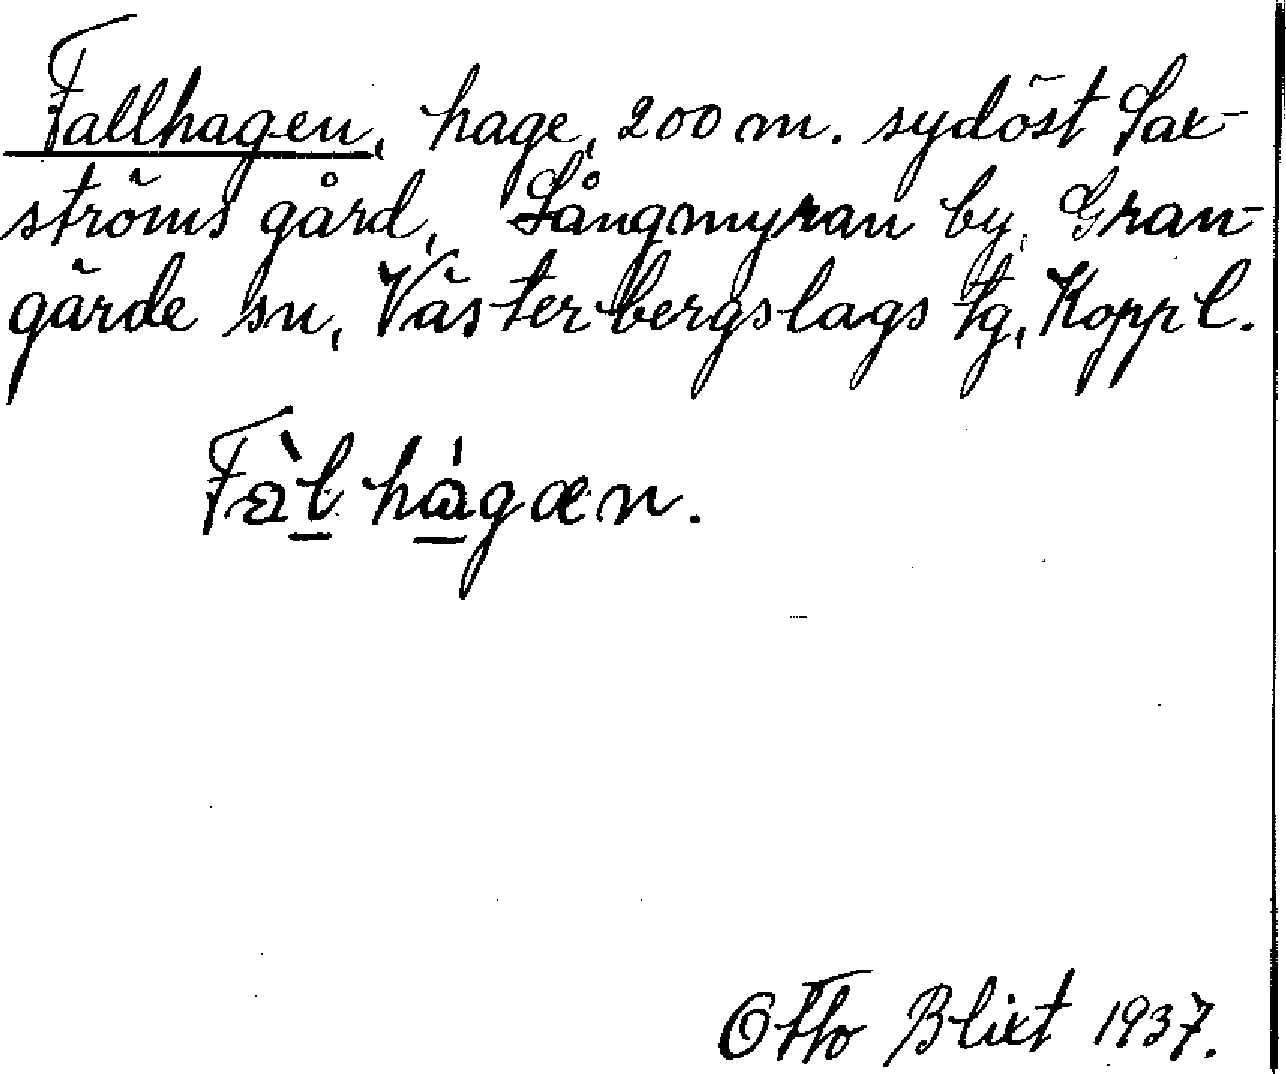 Fallhagen, hage, 200 m. sydöst Sax-
ströms gård, Långmyran by, Gran-
gärde sn, Västerbergslags tg, Koppl.
Fàl hágæn.
Otto Blixt 1937.